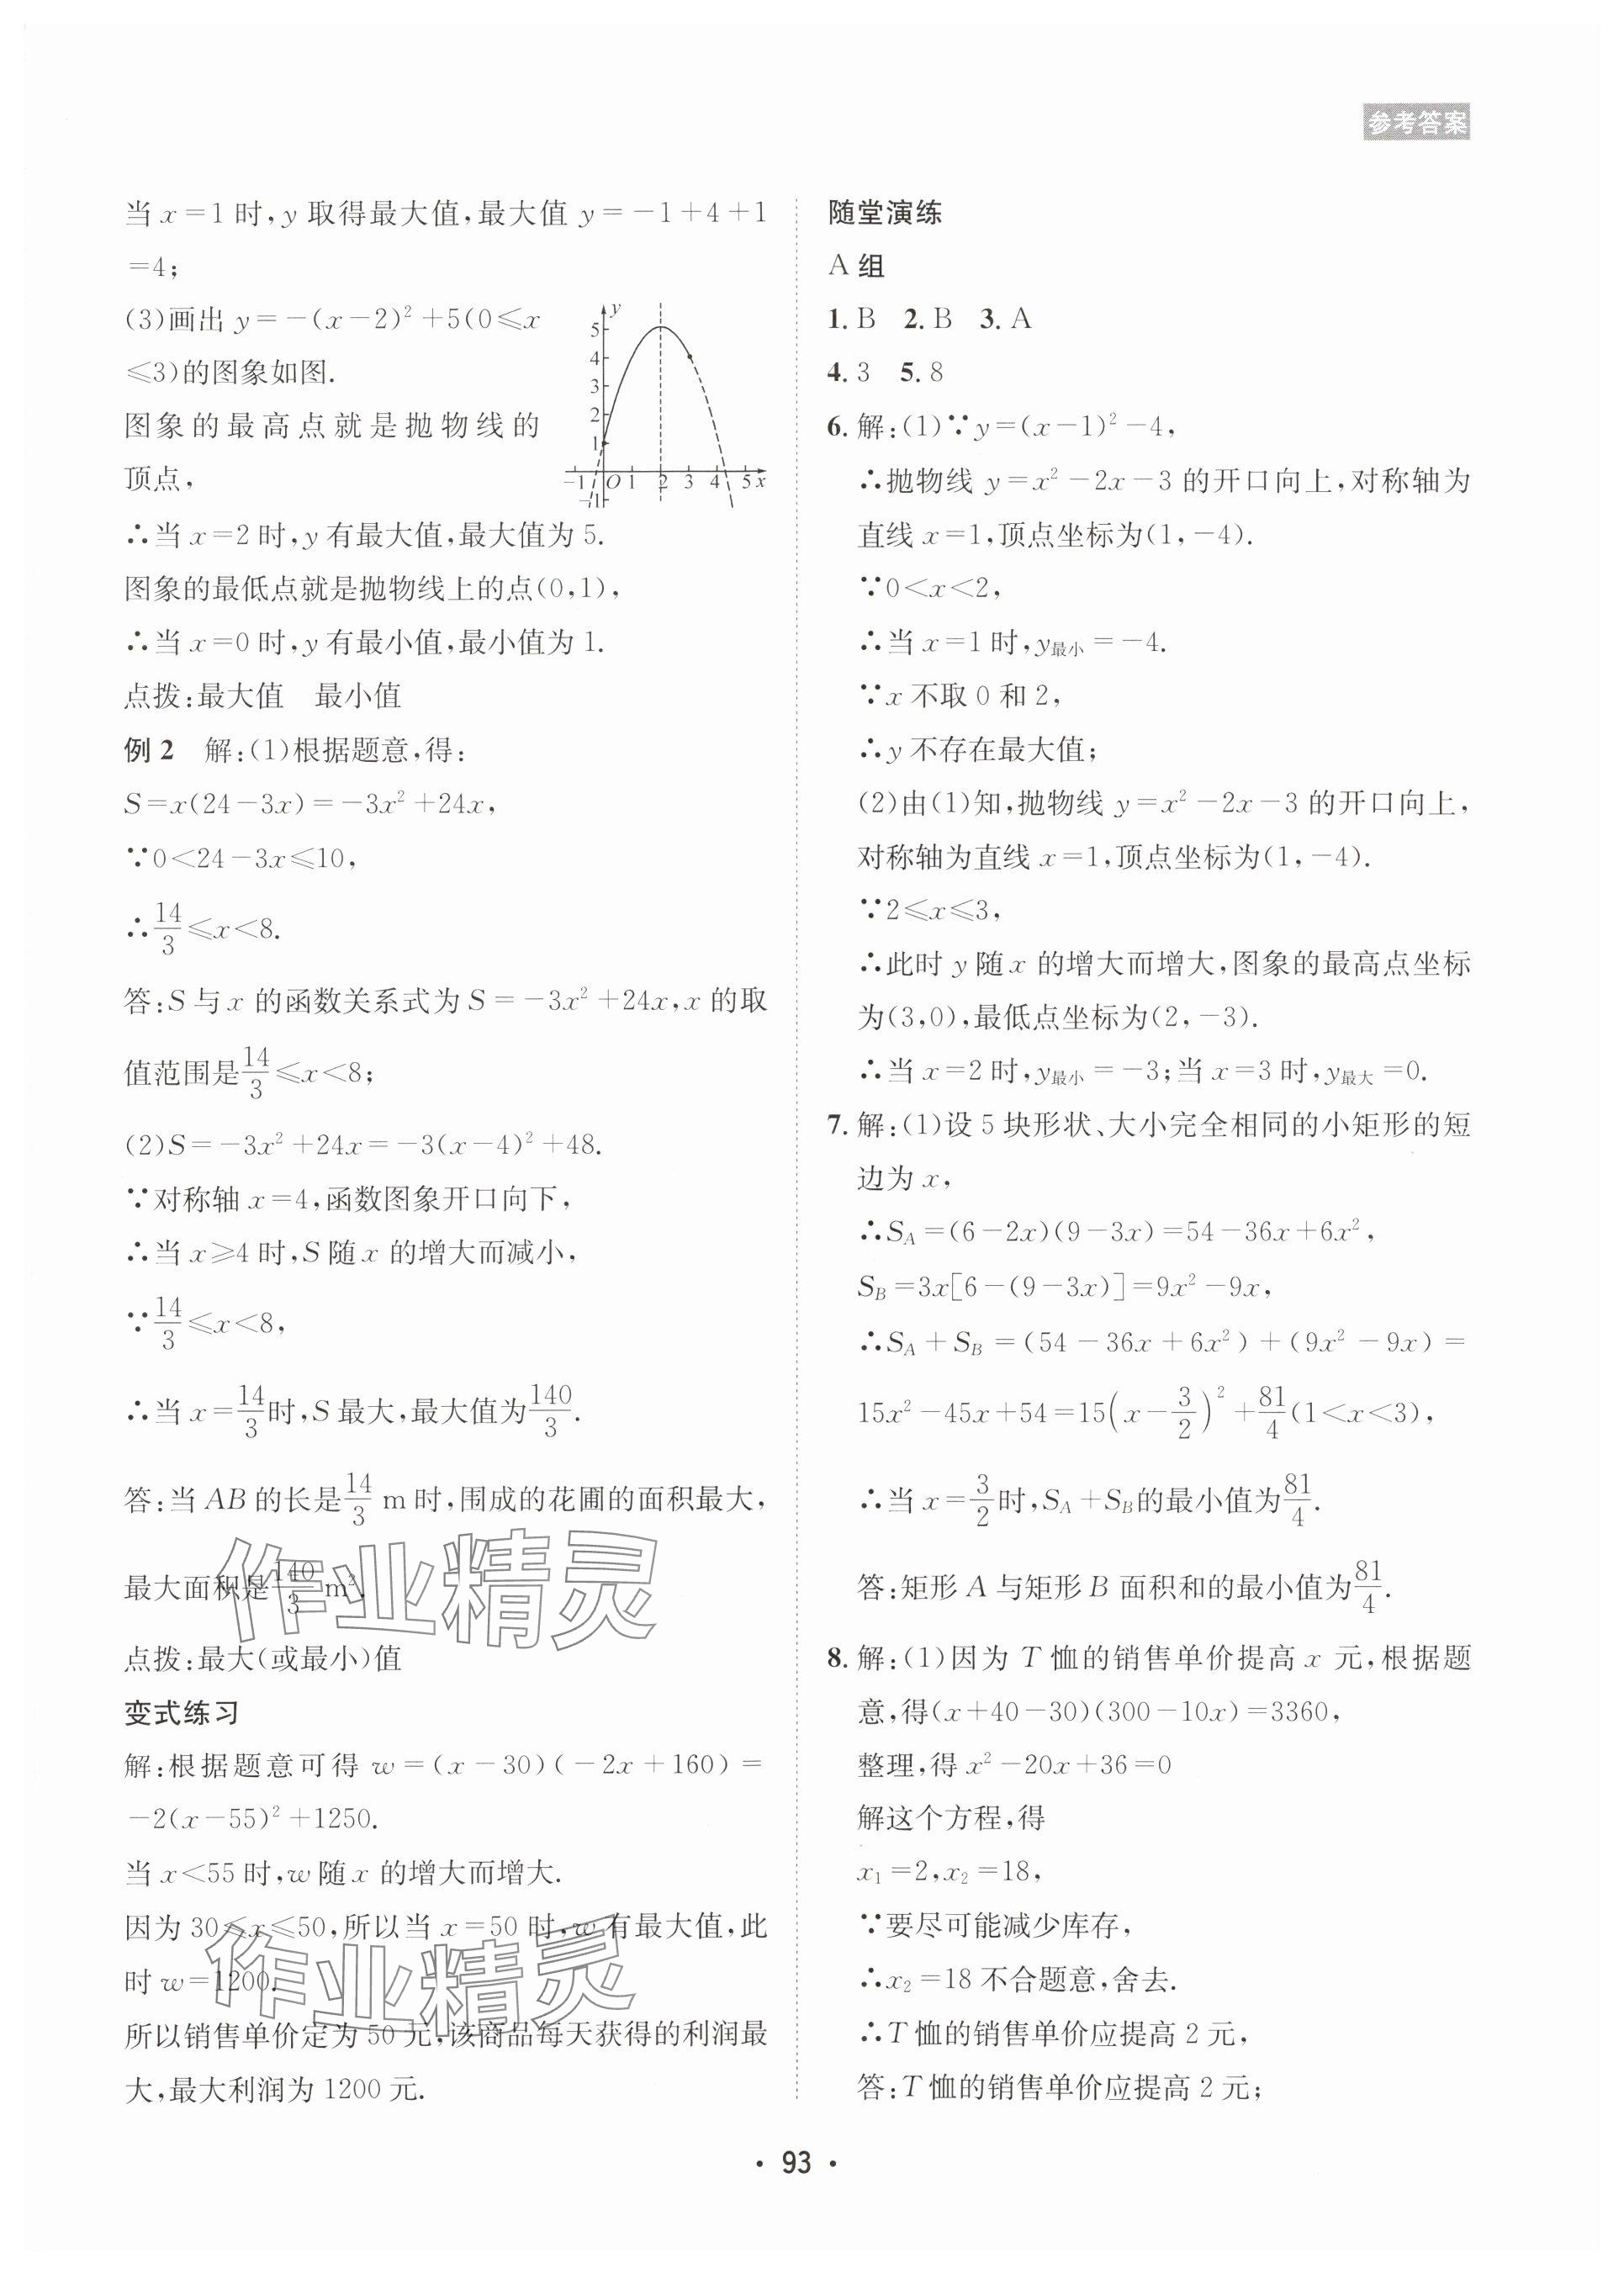 参考答案
当 x=1 时,y 取得最大值,最大值 y=-1+4+1
=4;
(3)画出 y=-(x-2)²+5(0≤x
≤3)的图象如图.
图象的最高点就是抛物线的
顶点,
y
5
4
3
2
1
-1 O 1 2 3 4 5 x
-1
∴当 x=2 时,y 有最大值,最大值为 5.
图象的最低点就是抛物线上的点(0,1),
∴当 x=0 时,y 有最小值,最小值为 1.
点拨:最大值 最小值
例 2 解:(1)根据题意,得:
S=x(24-3x)=-3x²+24x,
∵0<24-3x≤10,
∴14/3≤x<8.
答:S 与 x 的函数关系式为 S=-3x²+24x,x 的取
值范围是14/3≤x<8;
(2)S=-3x²+24x=-3(x-4)²+48.
∵对称轴 x=4,函数图象开口向下,
∴当 x≥4 时,S 随 x 的增大而减小,
∵14/3≤x<8,
∴当 x=14/3时,S 最大,最大值为140/3.
答:当 AB 的长是14/3 m 时,围成的花圃的面积最大,
最大面积是140/3 m².
点拨:最大(或最小)值
变式练习
解:根据题意可得 w=(x-30)(-2x+160)=
-2(x-55)²+1250.
当 x<55 时,w 随 x 的增大而增大.
因为 30≤x≤50,所以当 x=50 时,w 有最大值,此
时 w=1200.
所以销售单价定为 50 元,该商品每天获得的利润最
大,最大利润为 1200 元.
作业精灵
作业精灵
随堂演练
A 组
1. B 2. B 3. A
4. 3 5. 8
6. 解:(1)∵y=(x-1)²-4,
∴抛物线 y=x²-2x-3 的开口向上,对称轴为
直线 x=1,顶点坐标为(1,-4).
∵0<x<2,
∴当 x=1 时,y最小=-4.
∵x 不取 0 和 2,
∴y 不存在最大值;
(2)由(1)知,抛物线 y=x²-2x-3 的开口向上,
对称轴为直线 x=1,顶点坐标为(1,-4).
∵2≤x≤3,
∴此时 y 随 x 的增大而增大,图象的最高点坐标
为(3,0),最低点坐标为(2,-3).
∴当 x=2 时,y最小=-3;当 x=3 时,y最大=0.
7. 解:(1)设 5 块形状、大小完全相同的小矩形的短
边为 x,
∴S_A=(6-2x)(9-3x)=54-36x+6x²,
S_B=3x[6-(9-3x)]=9x²-9x,
∴S_A+S_B=(54-36x+6x²)+(9x²-9x)=
15x²-45x+54=15(x-3/2)²+81/4(1<x<3),
∴当 x=3/2时,S_A+S_B的最小值为81/4.
答:矩形 A 与矩形 B 面积和的最小值为81/4.
8. 解:(1)因为 T 恤的销售单价提高 x 元,根据题
意,得(x+40-30)(300-10x)=3360,
整理,得 x²-20x+36=0
解这个方程,得
x₁=2,x₂=18,
∵要尽可能减少库存,
∴x₂=18 不合题意,舍去.
∴T 恤的销售单价应提高 2 元,
答:T 恤的销售单价应提高 2 元;
· 93 ·